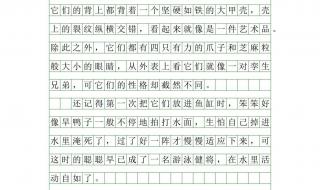 它们的背上都背着一个坚硬如铁的大甲壳，壳
上的裂纹纵横交错，看起来就像是一件艺术品。
除此之外，它们都有四只有力的爪子和芝麻粒
般大小的眼睛，从外表上看它们就像一对孪生
兄弟，可它们的性格却截然不同。
还记得第一次把它们放进鱼缸时，笨笨好
像旱鸭子一般不停地拍打水面，生怕自己掉进
水里淹死了，过了好一阵才慢慢适应下来，可
这时的聪聪早已成了一名游泳健将，在水里活
动自如了。